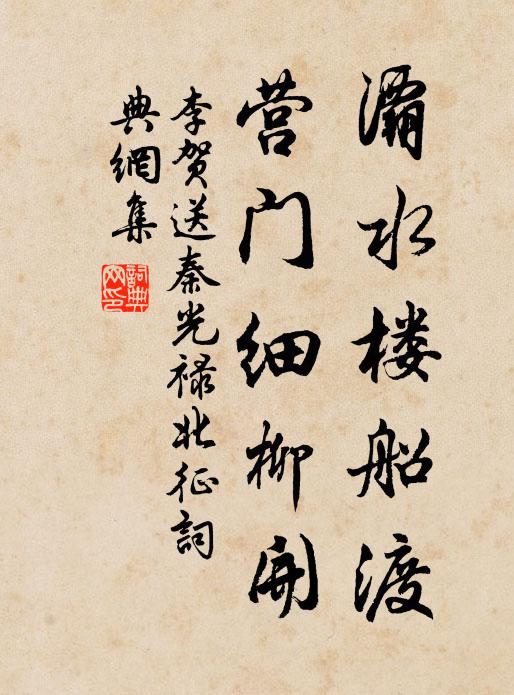 灞水楼船渡
营门细柳开
李贺送秦光禄北征詞
典網集
詞典网印